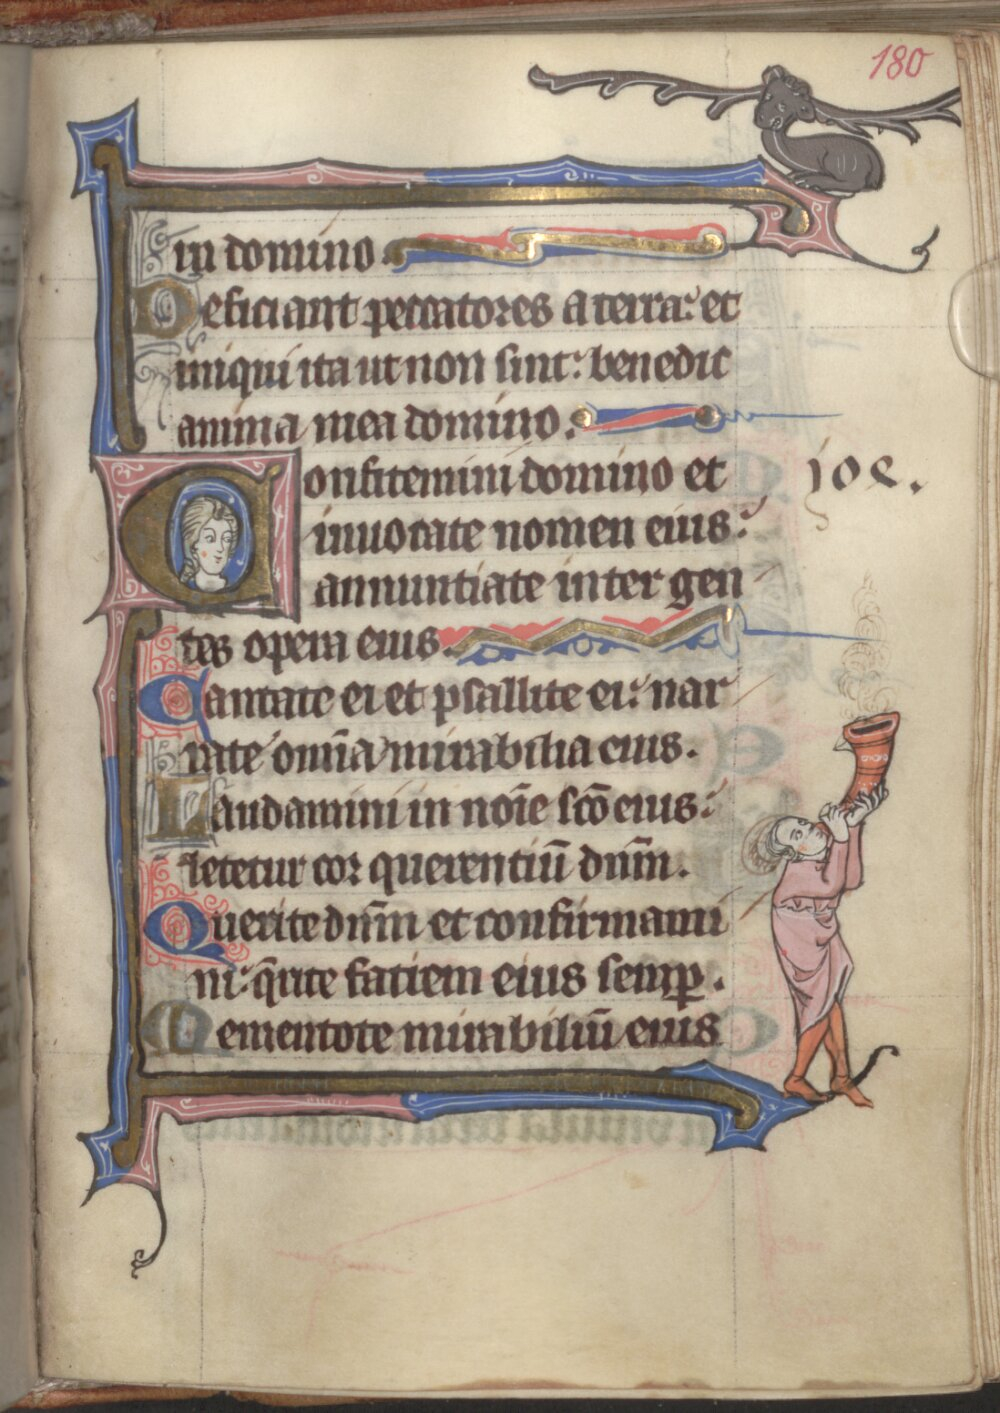 180
in domino
Deficiant peccatores a terra: et
iniqui ita ut non sint: benedic
anima mea domino.
Confitemini domino et
104.
inuocate nomen eius:
annuntiate inter gen
tes opera eius.
Cantate ei et psallite ei: nar
rate om̄ia mirabilia eius.
Laudamini in noīe sc̄o eius:
letetur cor querentiū dn̄m.
Querite dn̄m et confirmami
ni: q̄rite faciem eius semꝑ.
Mementote mirabiliū eius